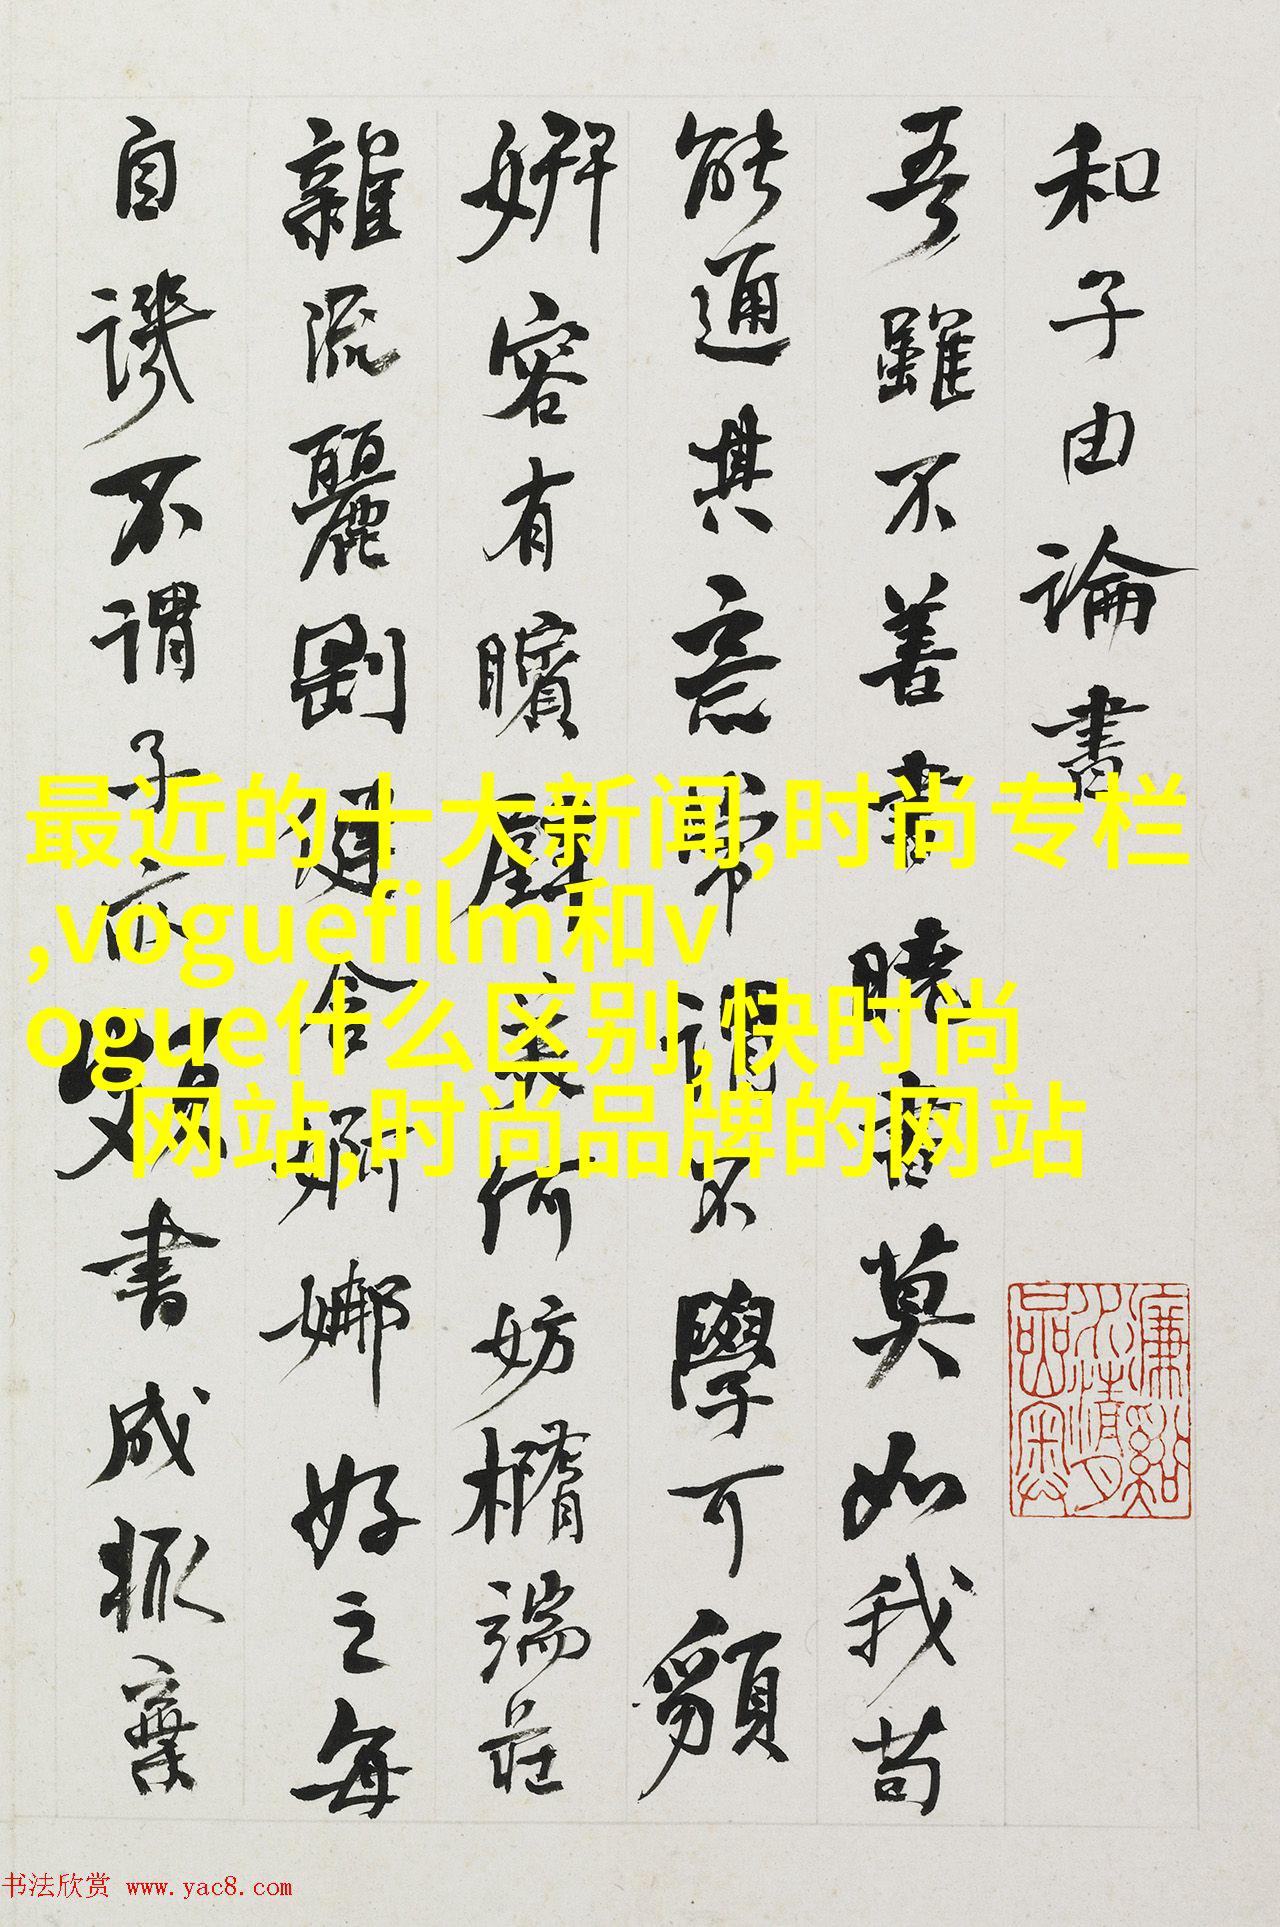 和子由論書
吾雖不善書曉書莫如我苟
能通其意常謂不學可貌
妍容有矉璧美何妨橢端莊
雜流麗剛健含婀娜好之每
自譏不謂子亦頗書成輒棄
最近的十大新闻,时尚专栏
,voguefilm和v
ogue什么区别,快时尚
网站,时尚品牌的网站
书法欣赏 www.yac8.com